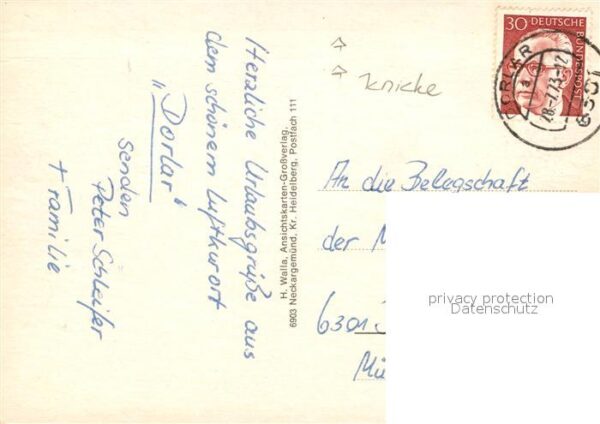 Herzliche Urlaubsgrüße aus
dem schönem Luftkurort
„Dorlar“
senden
Peter Schleifer
+ Familie
H. Walla, Ansichtskarten-Großverlag,
6903 Neckargemünd, Kr. Heidelberg, Postfach 111
Knicke
30 DEUTSCHE
BUNDESPOST
DORLAR
18-7.73-12
An die Belegschaft
der M
6301
Mü
privacy protection
Datenschutz